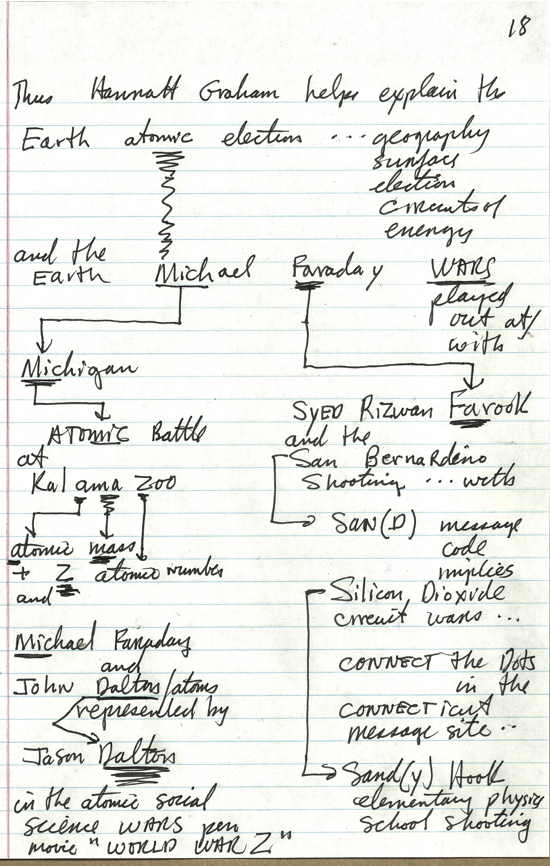 18
Thus Hannah Graham helps explain the
Earth atomic election ... geography
surface
election
circuits of
energy
and the
Earth Michael Faraday WARS
played
out at/
with
Michigan
ATOMIC Battle
at
Kal ama Zoo
atomic mass
+ Z atomic number
and
Michael Faraday
and
John Dalton/atoms
represented by
Jason Dalton
in the atomic social
science WARS per
movie "WORLD WAR Z"
SYED Rizwan Farook
and the
San Bernardino
Shooting ... with
SAN(D) message
code
implies
Silicon Dioxide
circuit wars ...
CONNECT the Dots
in the
CONNECTicut
message site ..
Sand(y) Hook
elementary physics
school shooting